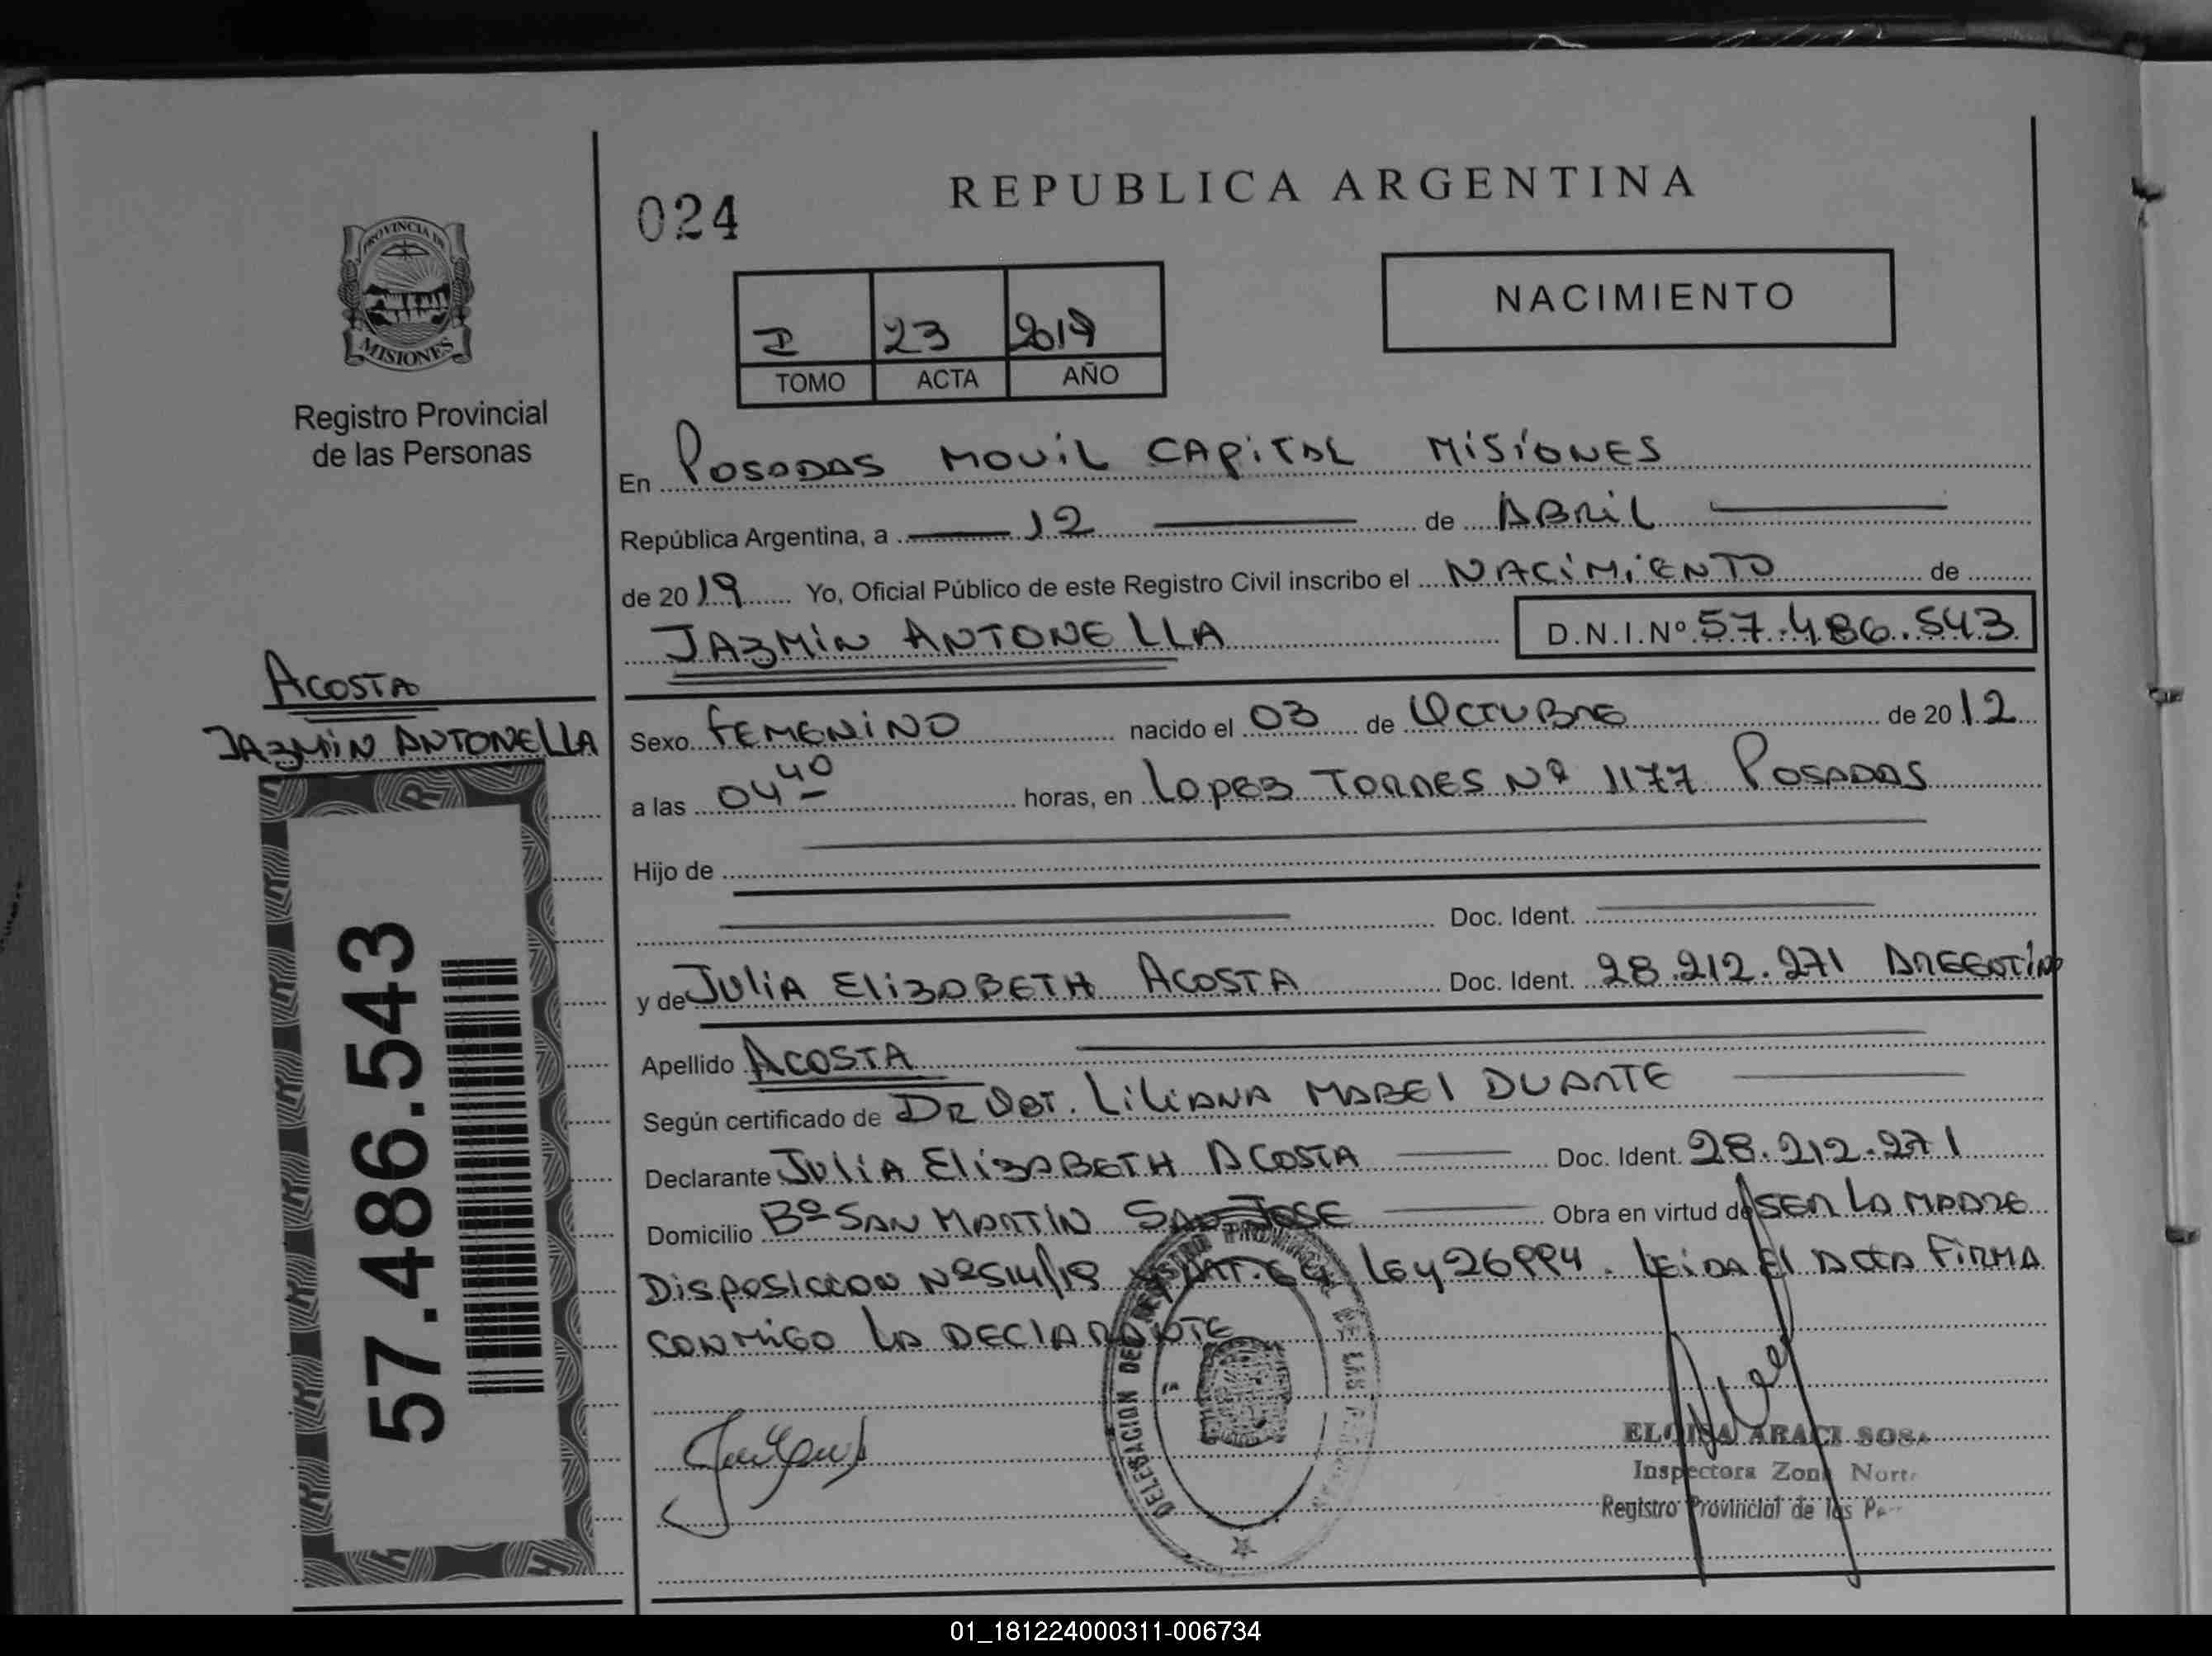 REPUBLICA ARGENTINA
024
NACIMIENTO
PROVINCIA DE
MISIONES
Registro Provincial
de las Personas
I 23 2019
TOMO ACTA AÑO
En POSADAS MOVIL CAPITAL MISIONES
República Argentina, a 12 de ABRIL
de 2019 Yo, Oficial Público de este Registro Civil inscribo el NACIMIENTO de
JAZMIN ANTONELLA D.N.I.Nº 57.486.543
ACOSTA
JAZMIN ANTONELLA
57.486.543
Sexo FEMENINO nacido el 03 de OCTUBRE de 2012
a las 04 40 horas, en LOPEZ TORRES Nº 1177 POSADAS
Hijo de
Doc. Ident.
y de JULIA ELIZABETH ACOSTA Doc. Ident. 28.212.271
Apellido ACOSTA
Según certificado de DR OBT. LILIANA MABEL DUARTE
Declarante JULIA ELIZABETH ACOSTA Doc. Ident. 28.212.271
Domicilio Bº SAN MARTIN SAN JOSE Obra en virtud de SER LA MADRE
DISPOSICION Nº 514/18 ART. 64 LEY 26994. LEIDA EL ACTA FIRMA
CONMIGO LA DECLARANTE
DELEGACION DEL REGISTRO PROVINCIAL DE LAS
ELOISA ARACI SOSA
Inspectora Zona Norte
Registro Provincial de las
01_181224000311-006734